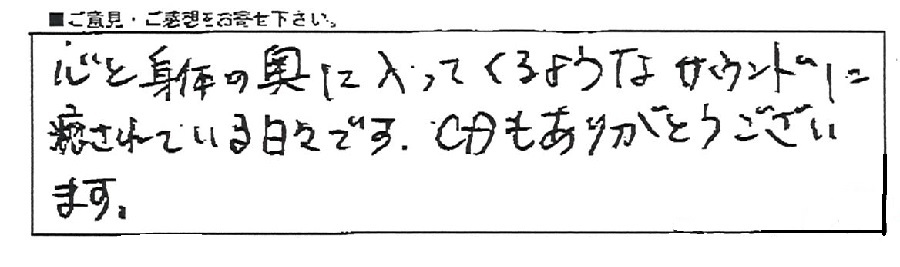 ■ご意見・ご感想をお寄せ下さい。
心と身体の奥に入ってくるようなサウンドに
癒されている日々です. CDもありがとうござい
ます。